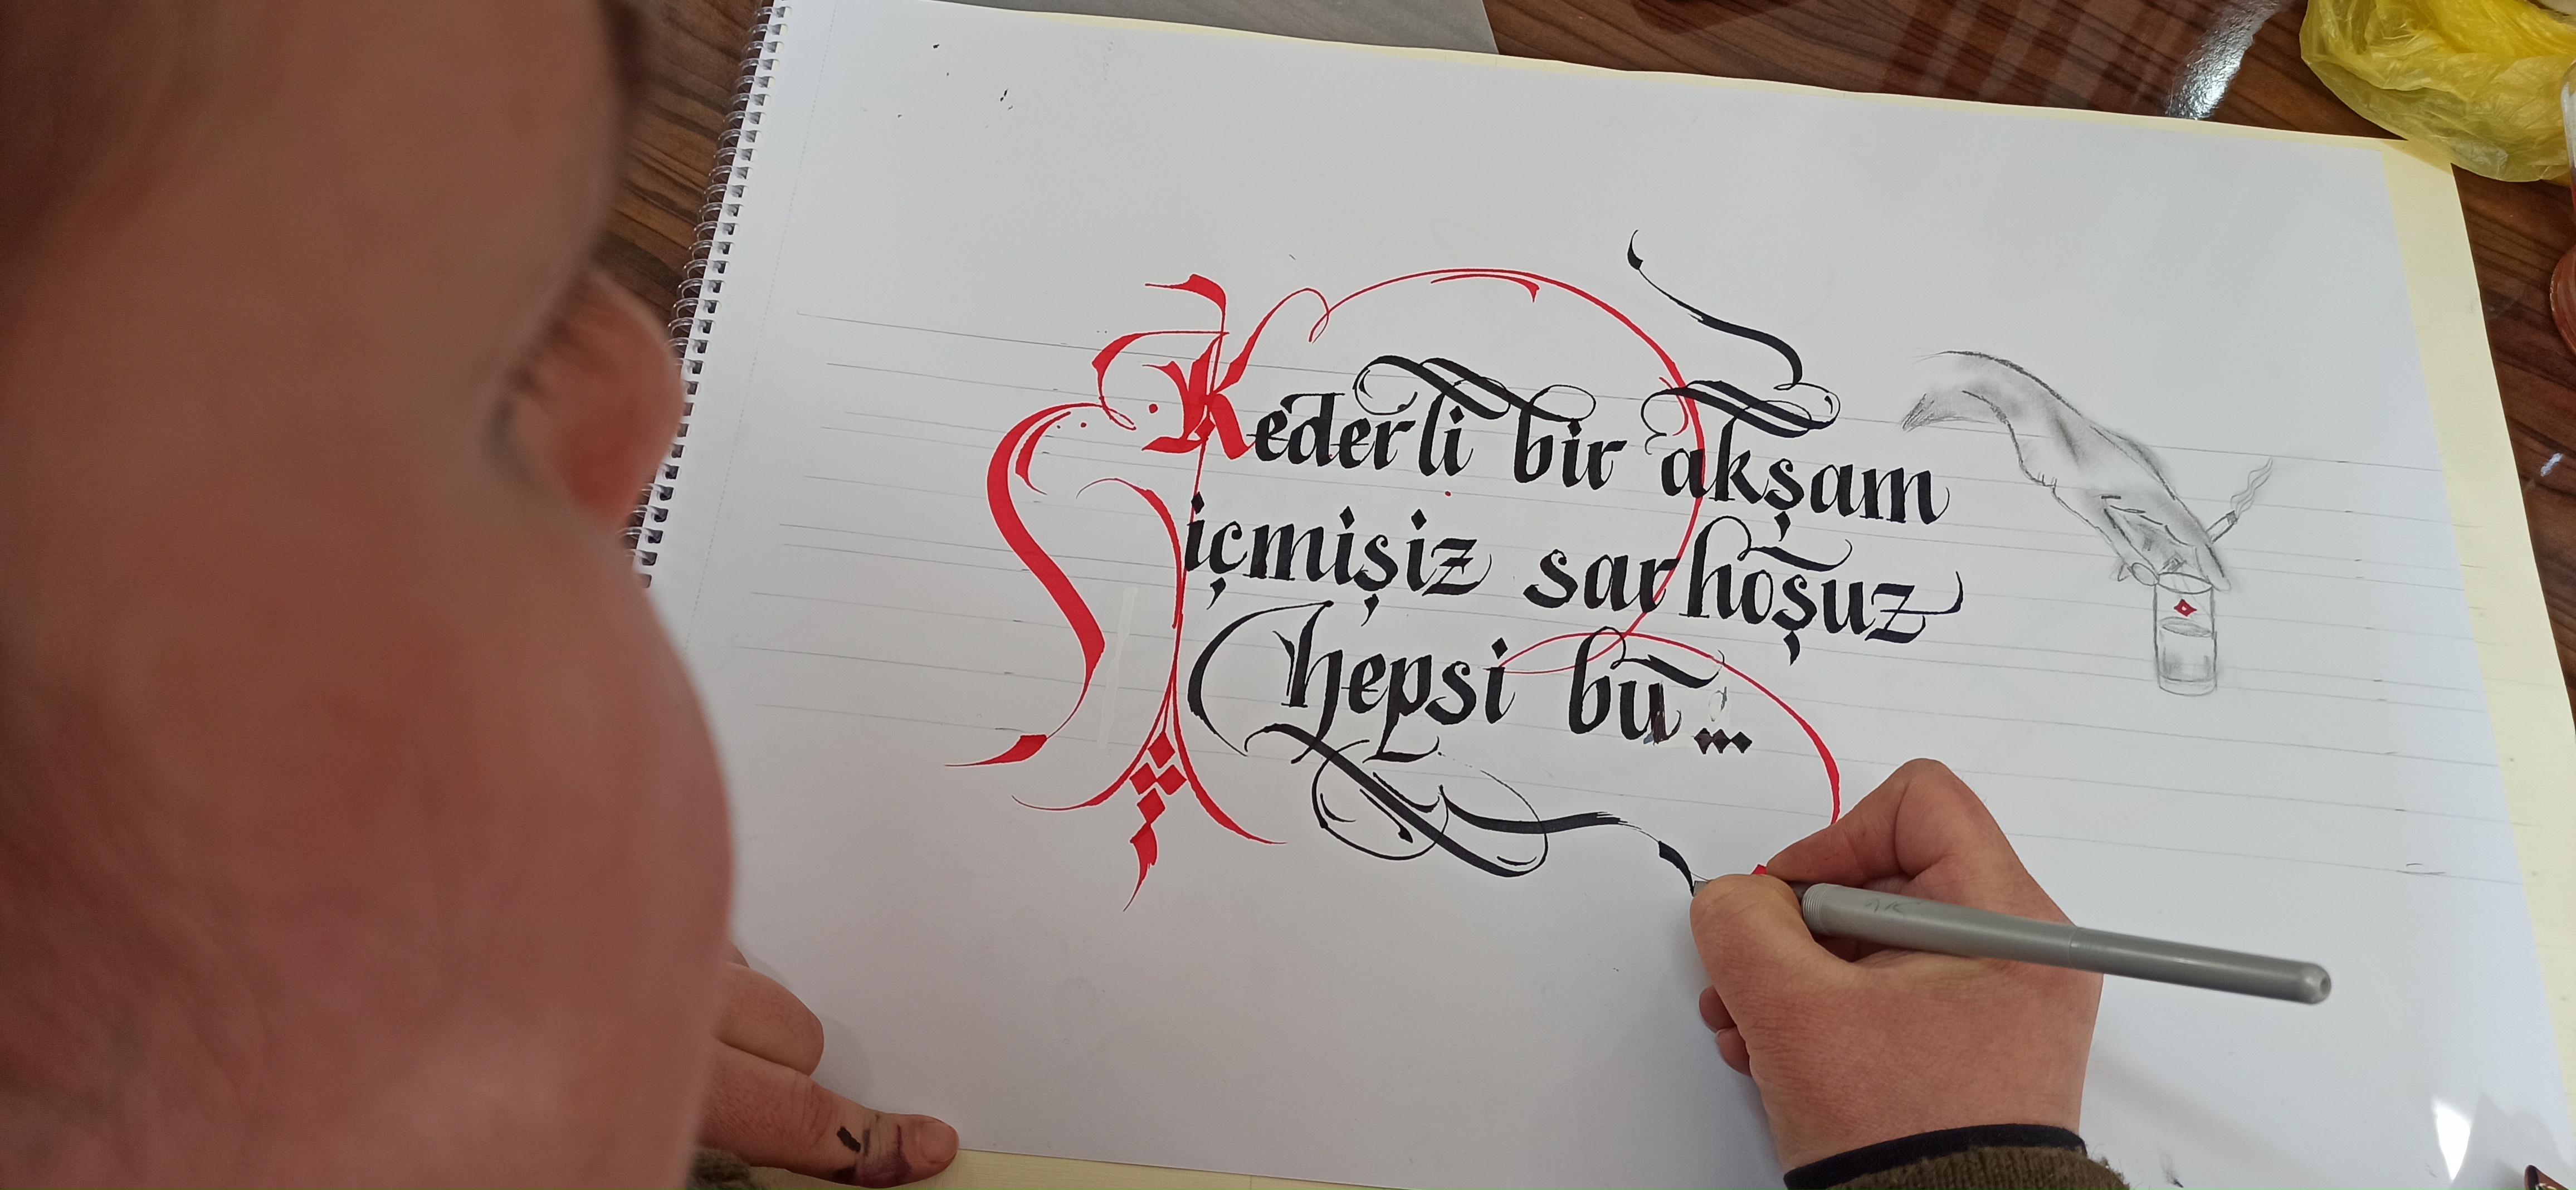 Kederli bir akşam
içmişiz sarhoşuz
hepsi bu...